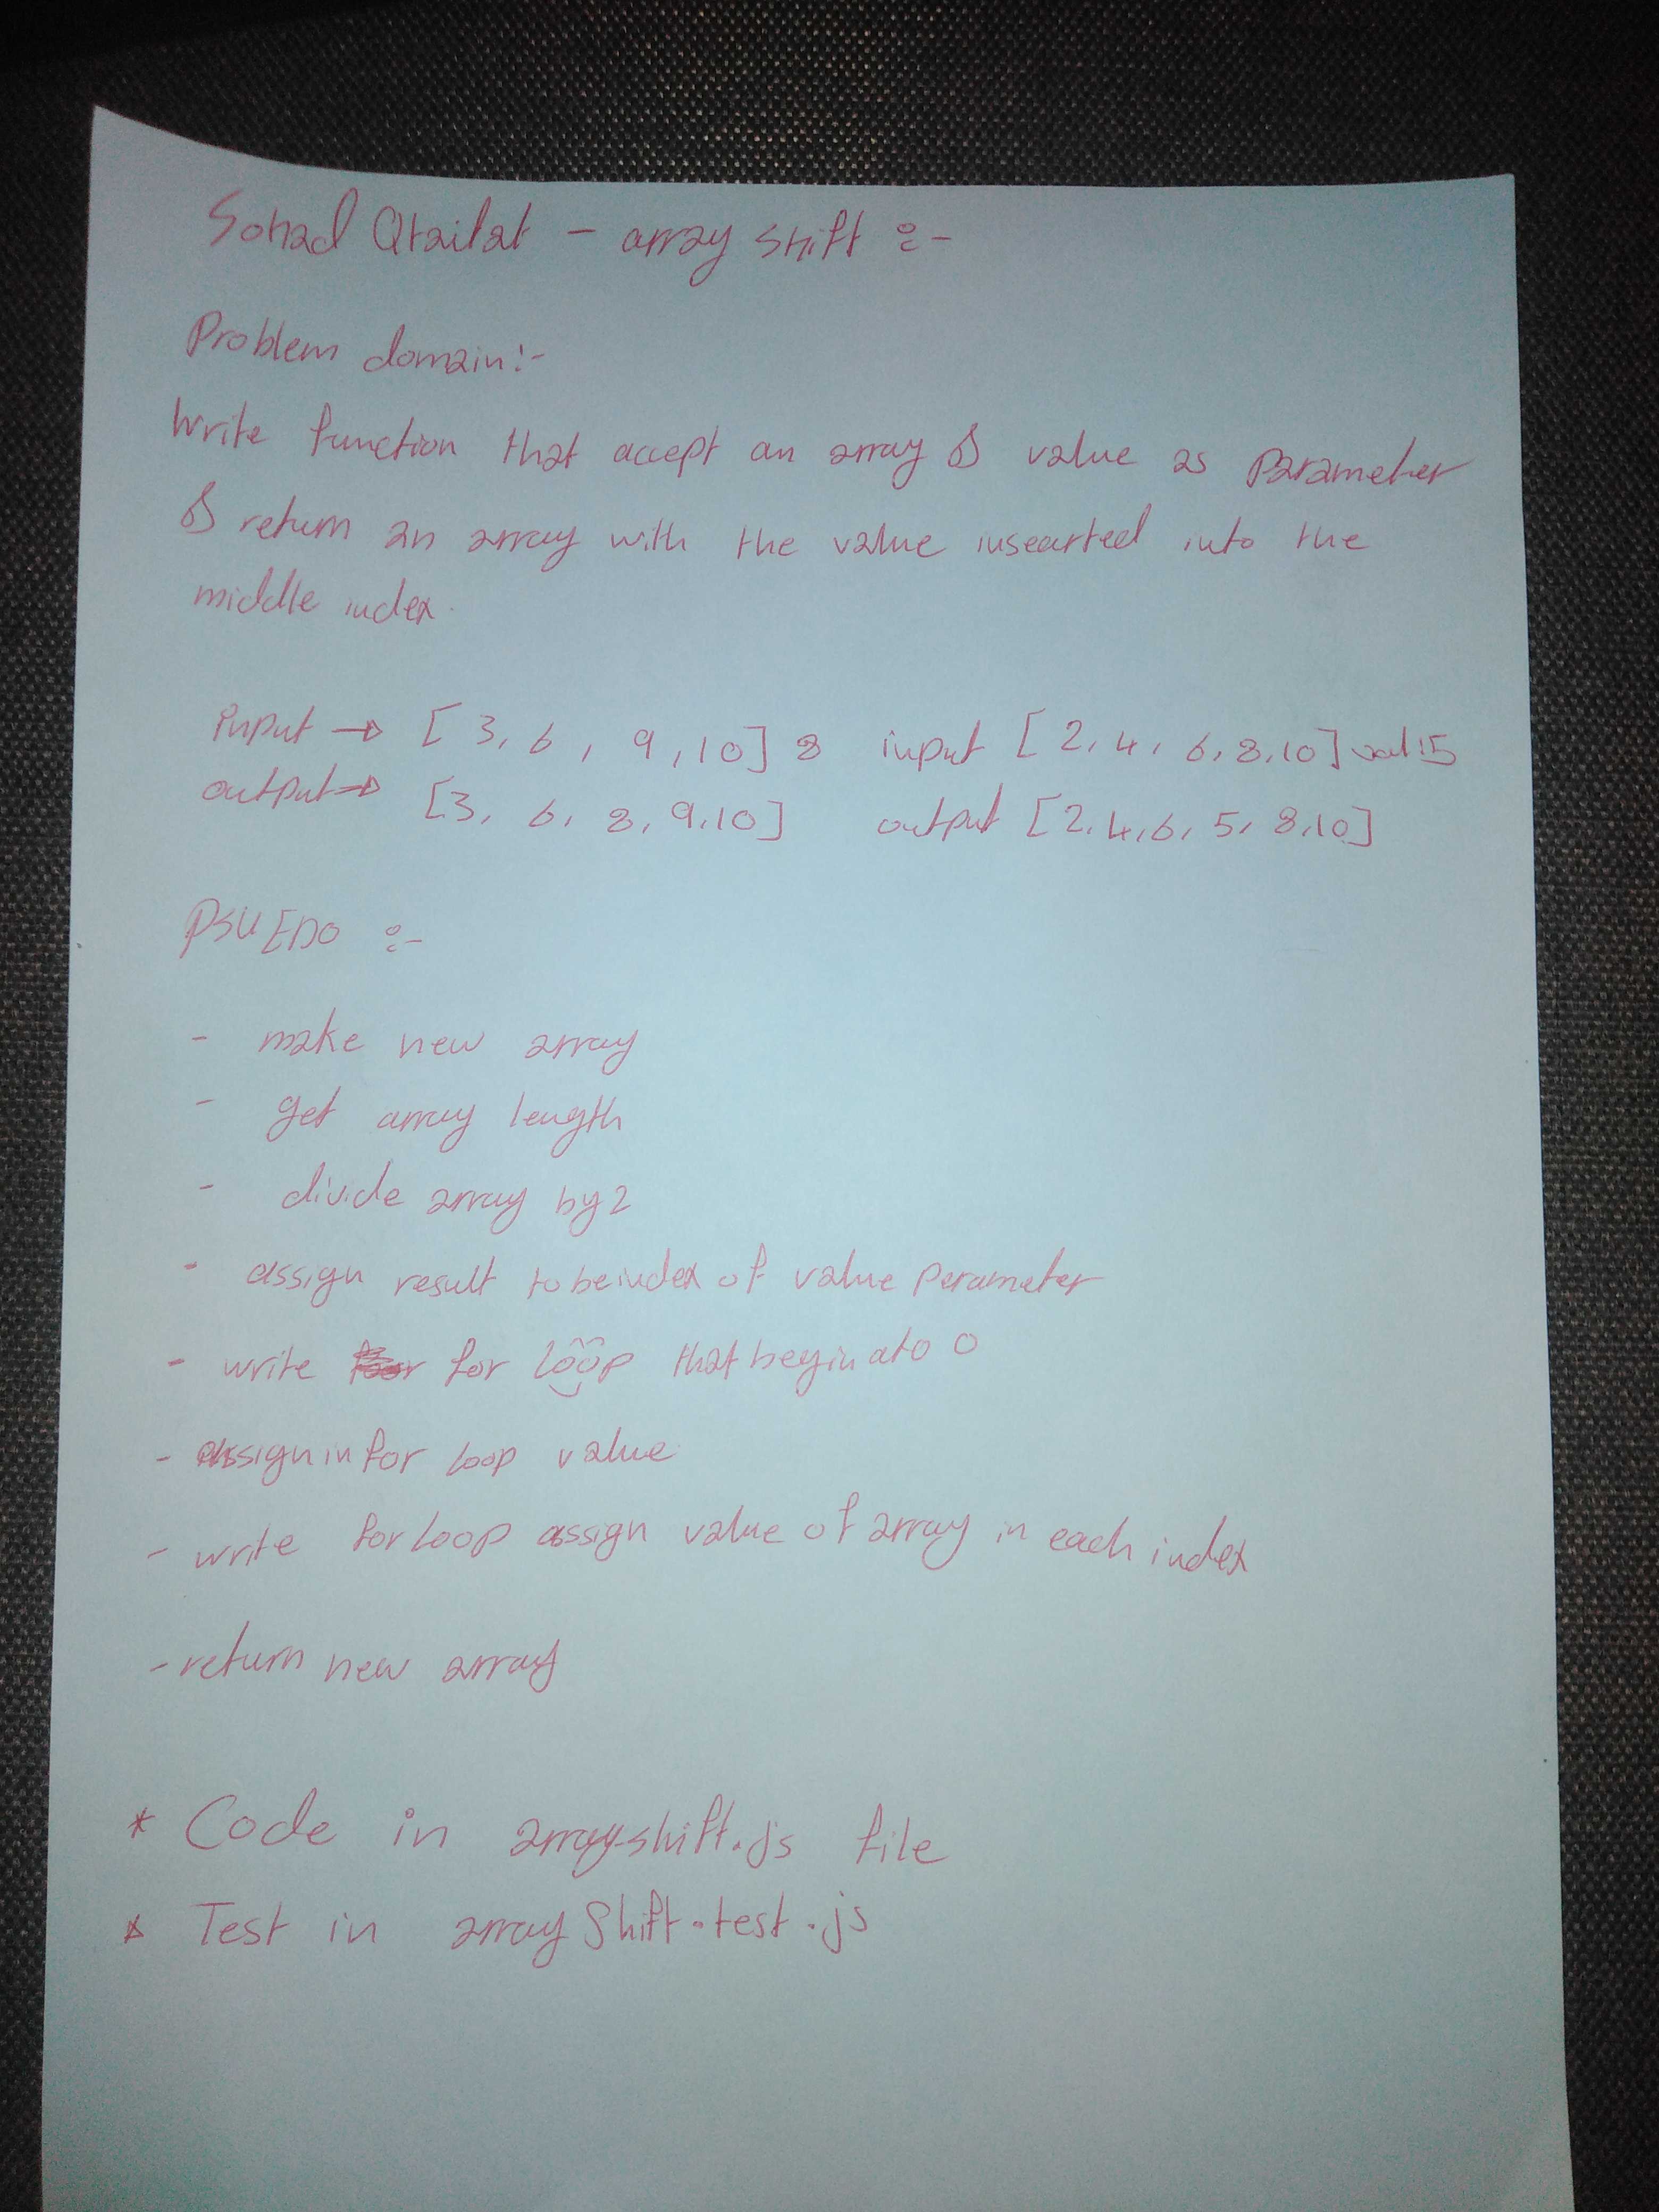 Sohad Qtailat - array shift :-
Problem domain:-
Write function that accept an array & value as parameter
& return an array with the value insearted into the
middle index.
input → [3, 6, 9, 10] 8 input [2, 4, 6, 8, 10] val:5
output → [3, 6, 8, 9, 10] output [2, 4, 6, 5, 8, 10]
PSUEDO :-
- make new array
- get array length
- divide array by 2
- assign result to be index of value perameter
- write for loop that begin at 0
- assign in for loop value
- write for loop assign value of array in each index
- return new array
* Code in array-shift.js file
* Test in arrayShift.test.js